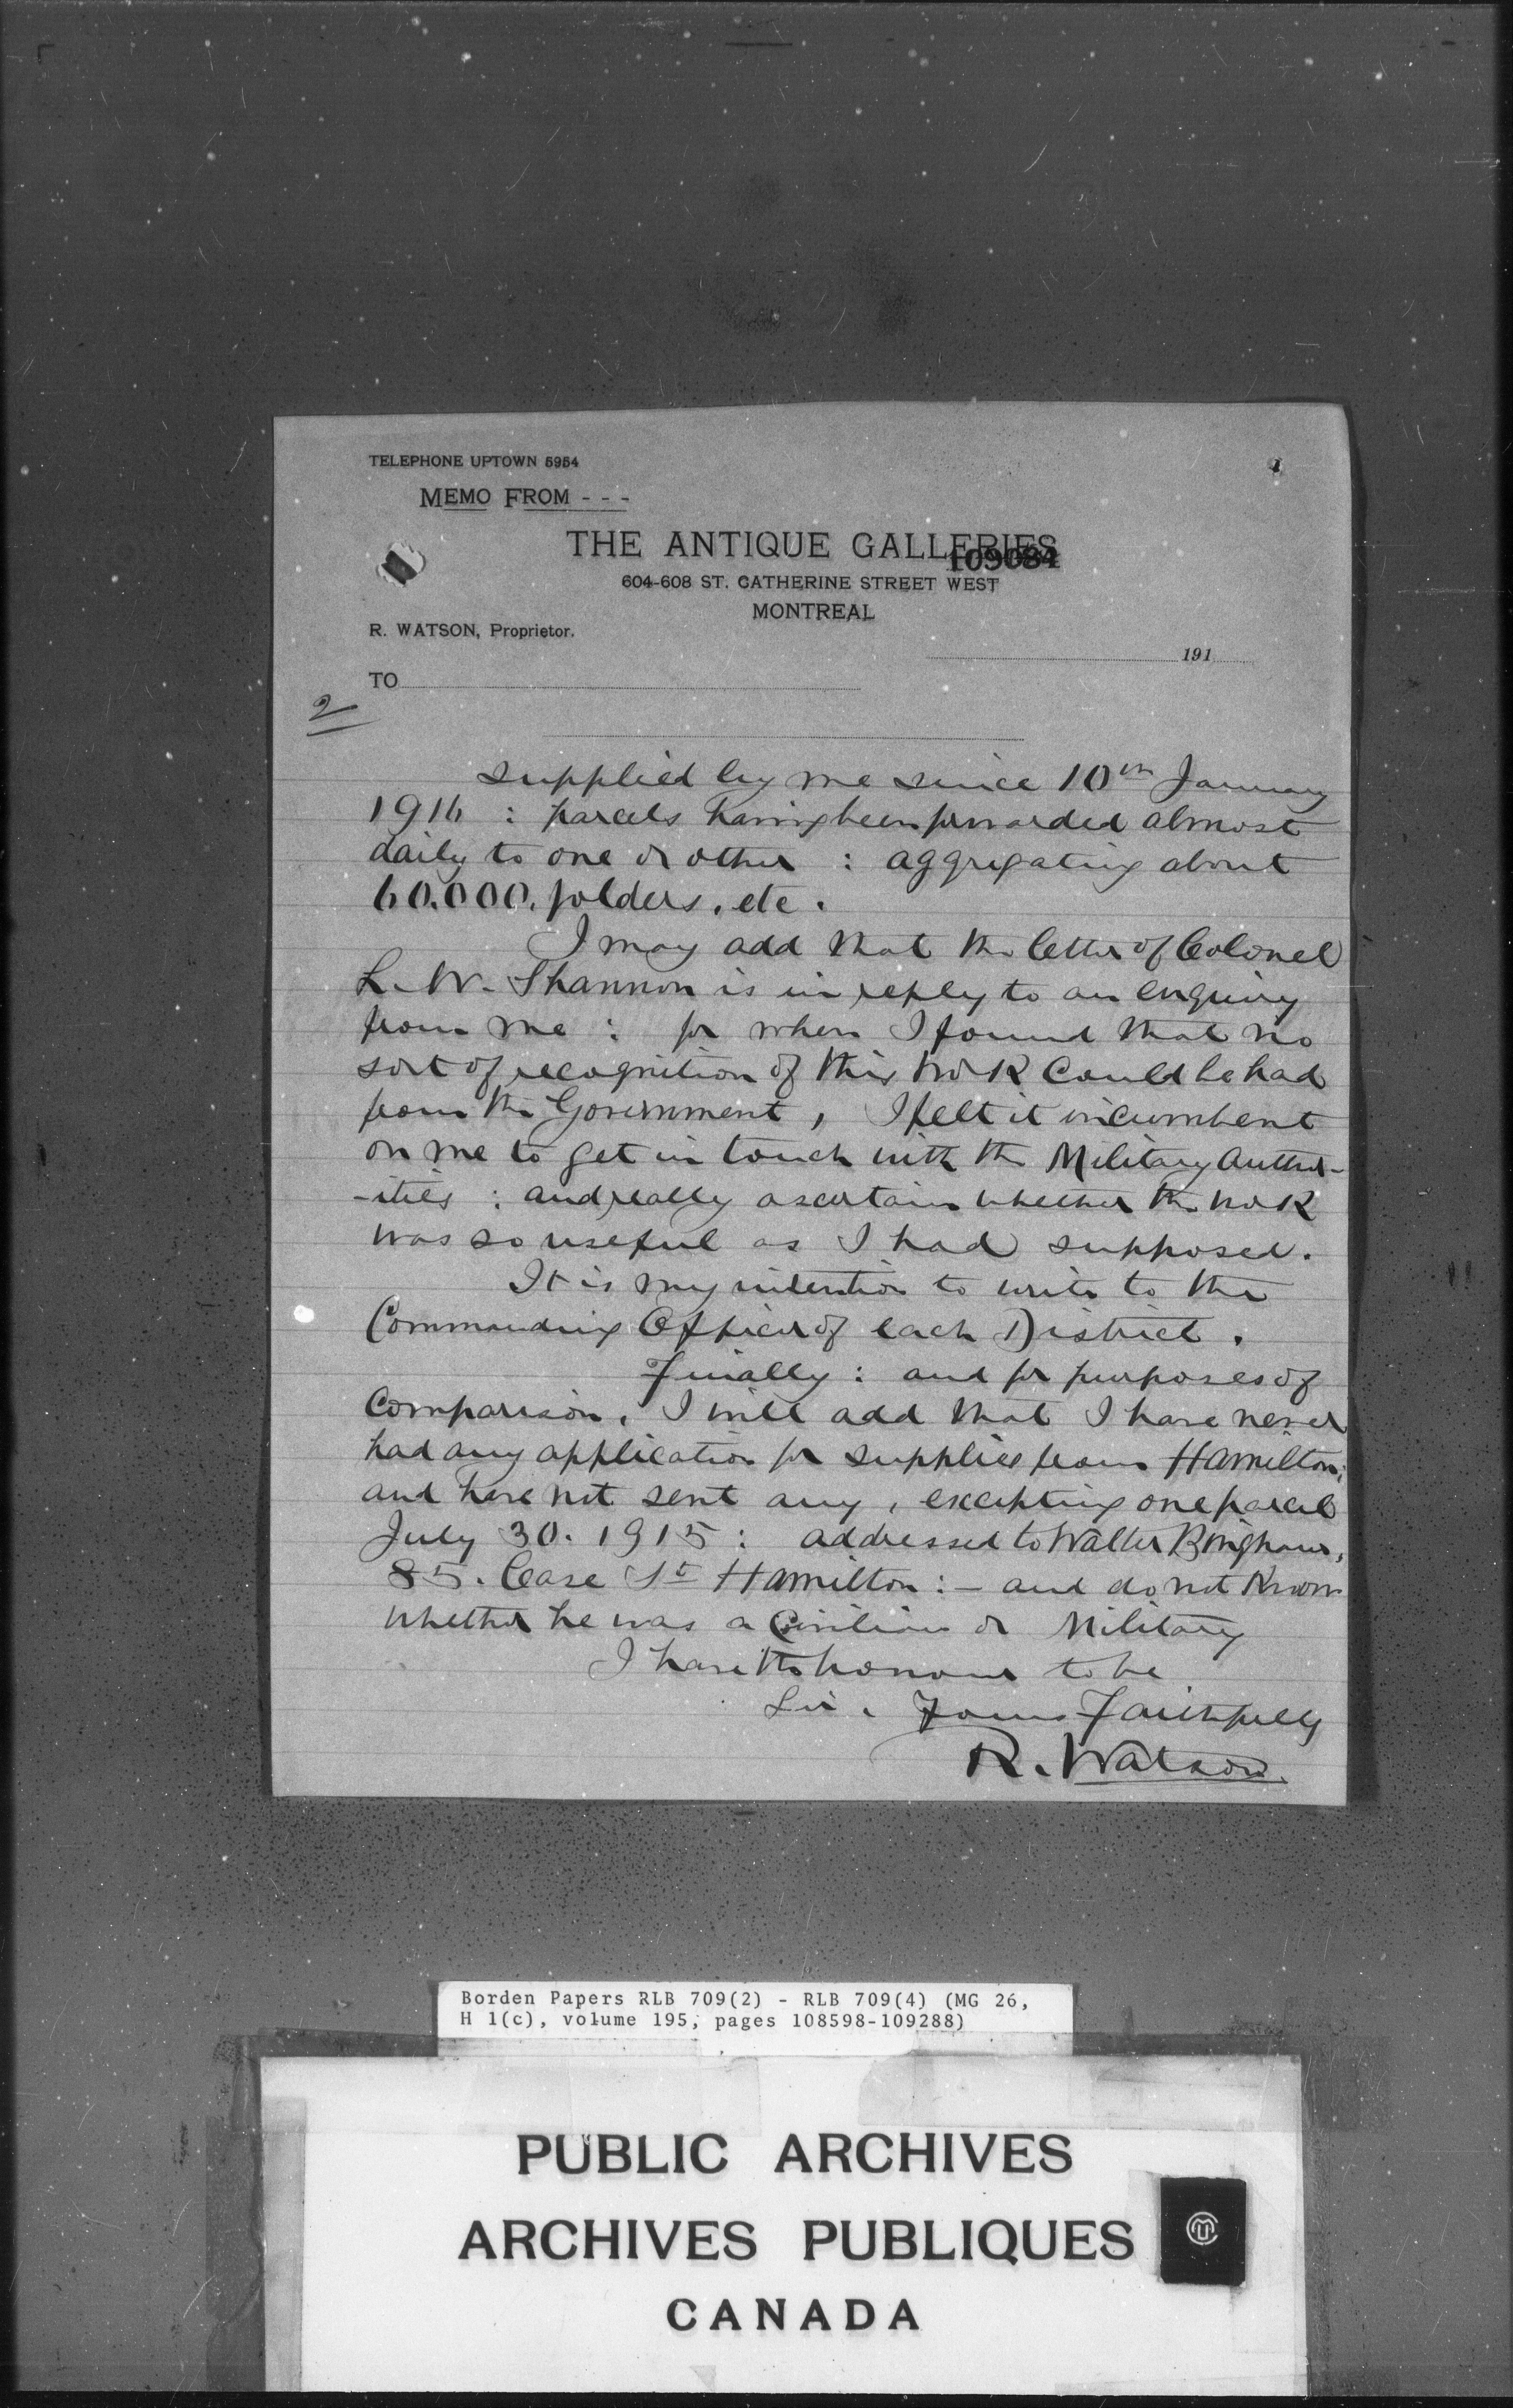 TELEPHONE UPTOWN 5954
MEMO FROM - - -
THE ANTIQUE GALLERIES
109084
604-608 ST. CATHERINE STREET WEST
MONTREAL
R. WATSON, Proprietor.
191
TO
2
supplied by me since 10th January
1916 : parcels having been forwarded almost
daily to one or other : aggregating about
60.000. folders. etc.
I may add that the letter of Colonel
L. W. Shannon is in reply to an enquiry
from me : for when I found that no
sort of recognition of this work could be had
from the Government, I felt it incumbent
on me to get in touch with the Military Author-
-ities : and really ascertain whether the work
was so useful as I had supposed.
It is my intention to write to the
Commanding Officer of each District.
Finally : and for purposes of
Comparison, I will add that I have never
had any application for supplies from Hamilton;
and have not sent any, excepting one parcel
July 30. 1915 : addressed to Walter Bingham,
85. Case St Hamilton : - and do not know
whether he was a Civilian or Military
I have the honour to be
Sir, Yours Faithfully
R. Watson.
Borden Papers RLB 709(2) - RLB 709(4) (MG 26,
H 1(c), volume 195, pages 108598-109288)
PUBLIC ARCHIVES
ARCHIVES PUBLIQUES
CANADA